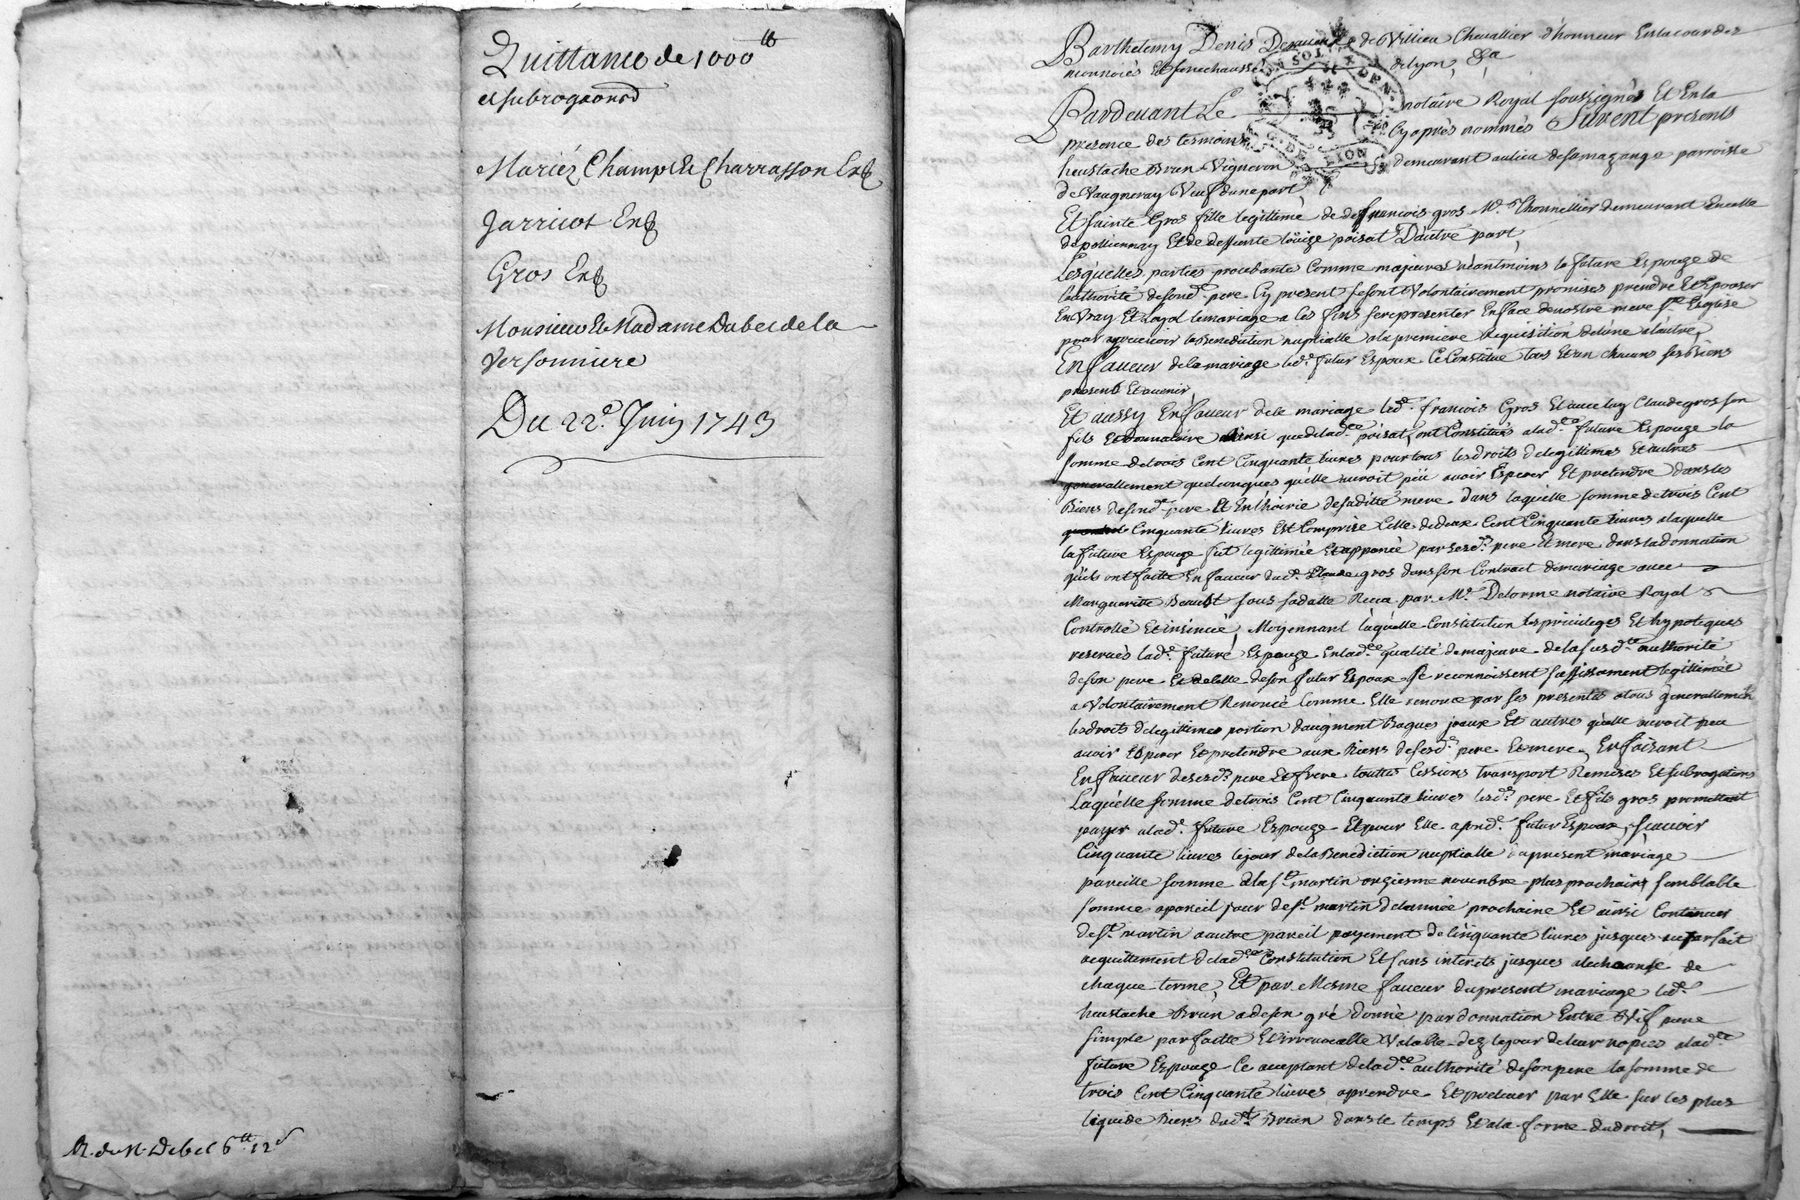 Quittance de 1000 ₶
et subrogaôns
Mariéz Champ Et Charrasson Entr
Jarricot Entr
Gros Entr
Monsieur Et Madame Dubec de la
Versonniere
Du 22e. Juin 1743
Barthelemy Denis de Villieu Chevallier d'honneur En la cour des
monnoiés Et senechaussé de Lyon, &a
Pardevant Le notaire Royal soussignés Et En la
presence des temoins Cy après nommés Furent presents
heustache Brun Vigneron demeurant au lieu de parroisse
de Vaugneray Veuf d'une part,
Et Sainte Gros fille legittime de de françois gros Me. Thonnellier demeurant En celle
de pollionnay Et de deffunte Loüize poisat D'autre part,
Lesquelles parties procedantes Comme majeures néantmoins la future Espouze de
lauthorité de son d. pere Cy present se sont Volontairement promises prendre Et Epouser
En Vray Et Loyal mariage a Ces fins se representer En face de nostre mere Ste Esglise
pour y recevoir la Benediction nuptialle a la premiere Requisition de l'une a l'autre,
En faveur de la mariage led. futur Espoux Ce Constitue tous Et un chacuns ses Biens
presents Et avenir
Et aussy En faveur de le mariage led. françois Gros Et avec luy Claude gros son
fils Et donnataire Ainsi que de lad. poisat, ont Constitués a lad. future Espouze la
somme de trois Cent Cinquante livres pour tous les droits de legittimes Et autres
generallement quelconques quelle auroit peü avoir Esperer Et pretendre dans les
Biens de son d. pere Et En l'hoirie de sa ditte mere dans laquelle somme de trois Cent
Cinquante livres Est Comprise Celle de deux Cent Cinquante livres a laquelle
la future Espouze fut legittimée Et appanée par sesd. pere Et mere dans la donnation
quils ont faitte En faveur dud. Claude gros dans son Contract de mariage avec
Marguerite Benoist sous sa datte Receu par Me. Delorme notaire Royal
Controllé Et insinué, Moyennant laquelle Constitution les privileges Et hypoteques
reservés lad. future Espouze En lad. qualité de majeure de la susd. authorité
de son pere Et de celle de son futur Espoux se reconnoissent suffisamment legittimée
a Volontairement Renoncé Comme Elle renonce par ses presentes a tous generallement
les droits de legittimes portion d'augment Bagues joyaux Et autres quelle auroit peu
avoir Esperer Et pretendre aux Biens de sesd. pere Et mere, En faizant
En faveur de sesd. pere Et frere toutes Cessions transport Remises Et subrogations
Laquelle somme de trois Cent Cinquante livres lesd. pere Et fils gros promettent
payer a lad. future Espouze Et pour Elle a sond. futur Espoux, sçavoir
Cinquante livres le jour de la Benediction nuptialle du present mariage
pareille somme a la St martin onzieme novembre plus prochain, semblable
somme a pareil jour de St. martin de l'année prochaine Et ainsi Continuer
de St. martin a autre pareil payement de Cinquante livres jusques au parfait
acquittement de lad. Constitution Et sans interets jusques a lecheance de
chaque terme, Et par Mesme faveur du present mariage led.
heustache Brun a de son gré donné par donnation Entre Vif pure
simple parfaitte Et irrevocable Valable dez le jour de leur nopces a lad.
future Espouze Ce acceptant de lad. authorité de son pere la somme de
trois Cent Cinquante livres a prendre Et prelever par Elle sur les plus
liquide Biens dud. Brun dans le temps Et a la forme du droit,